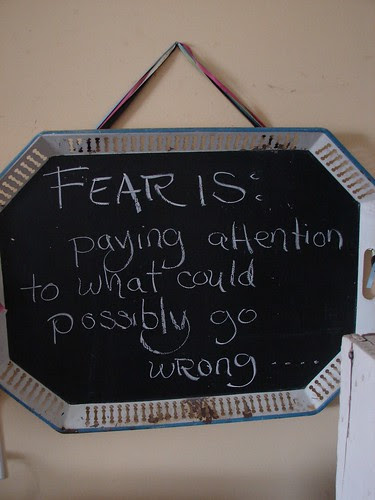 FEAR IS:
paying attention
to what could
possibly go
wrong ....